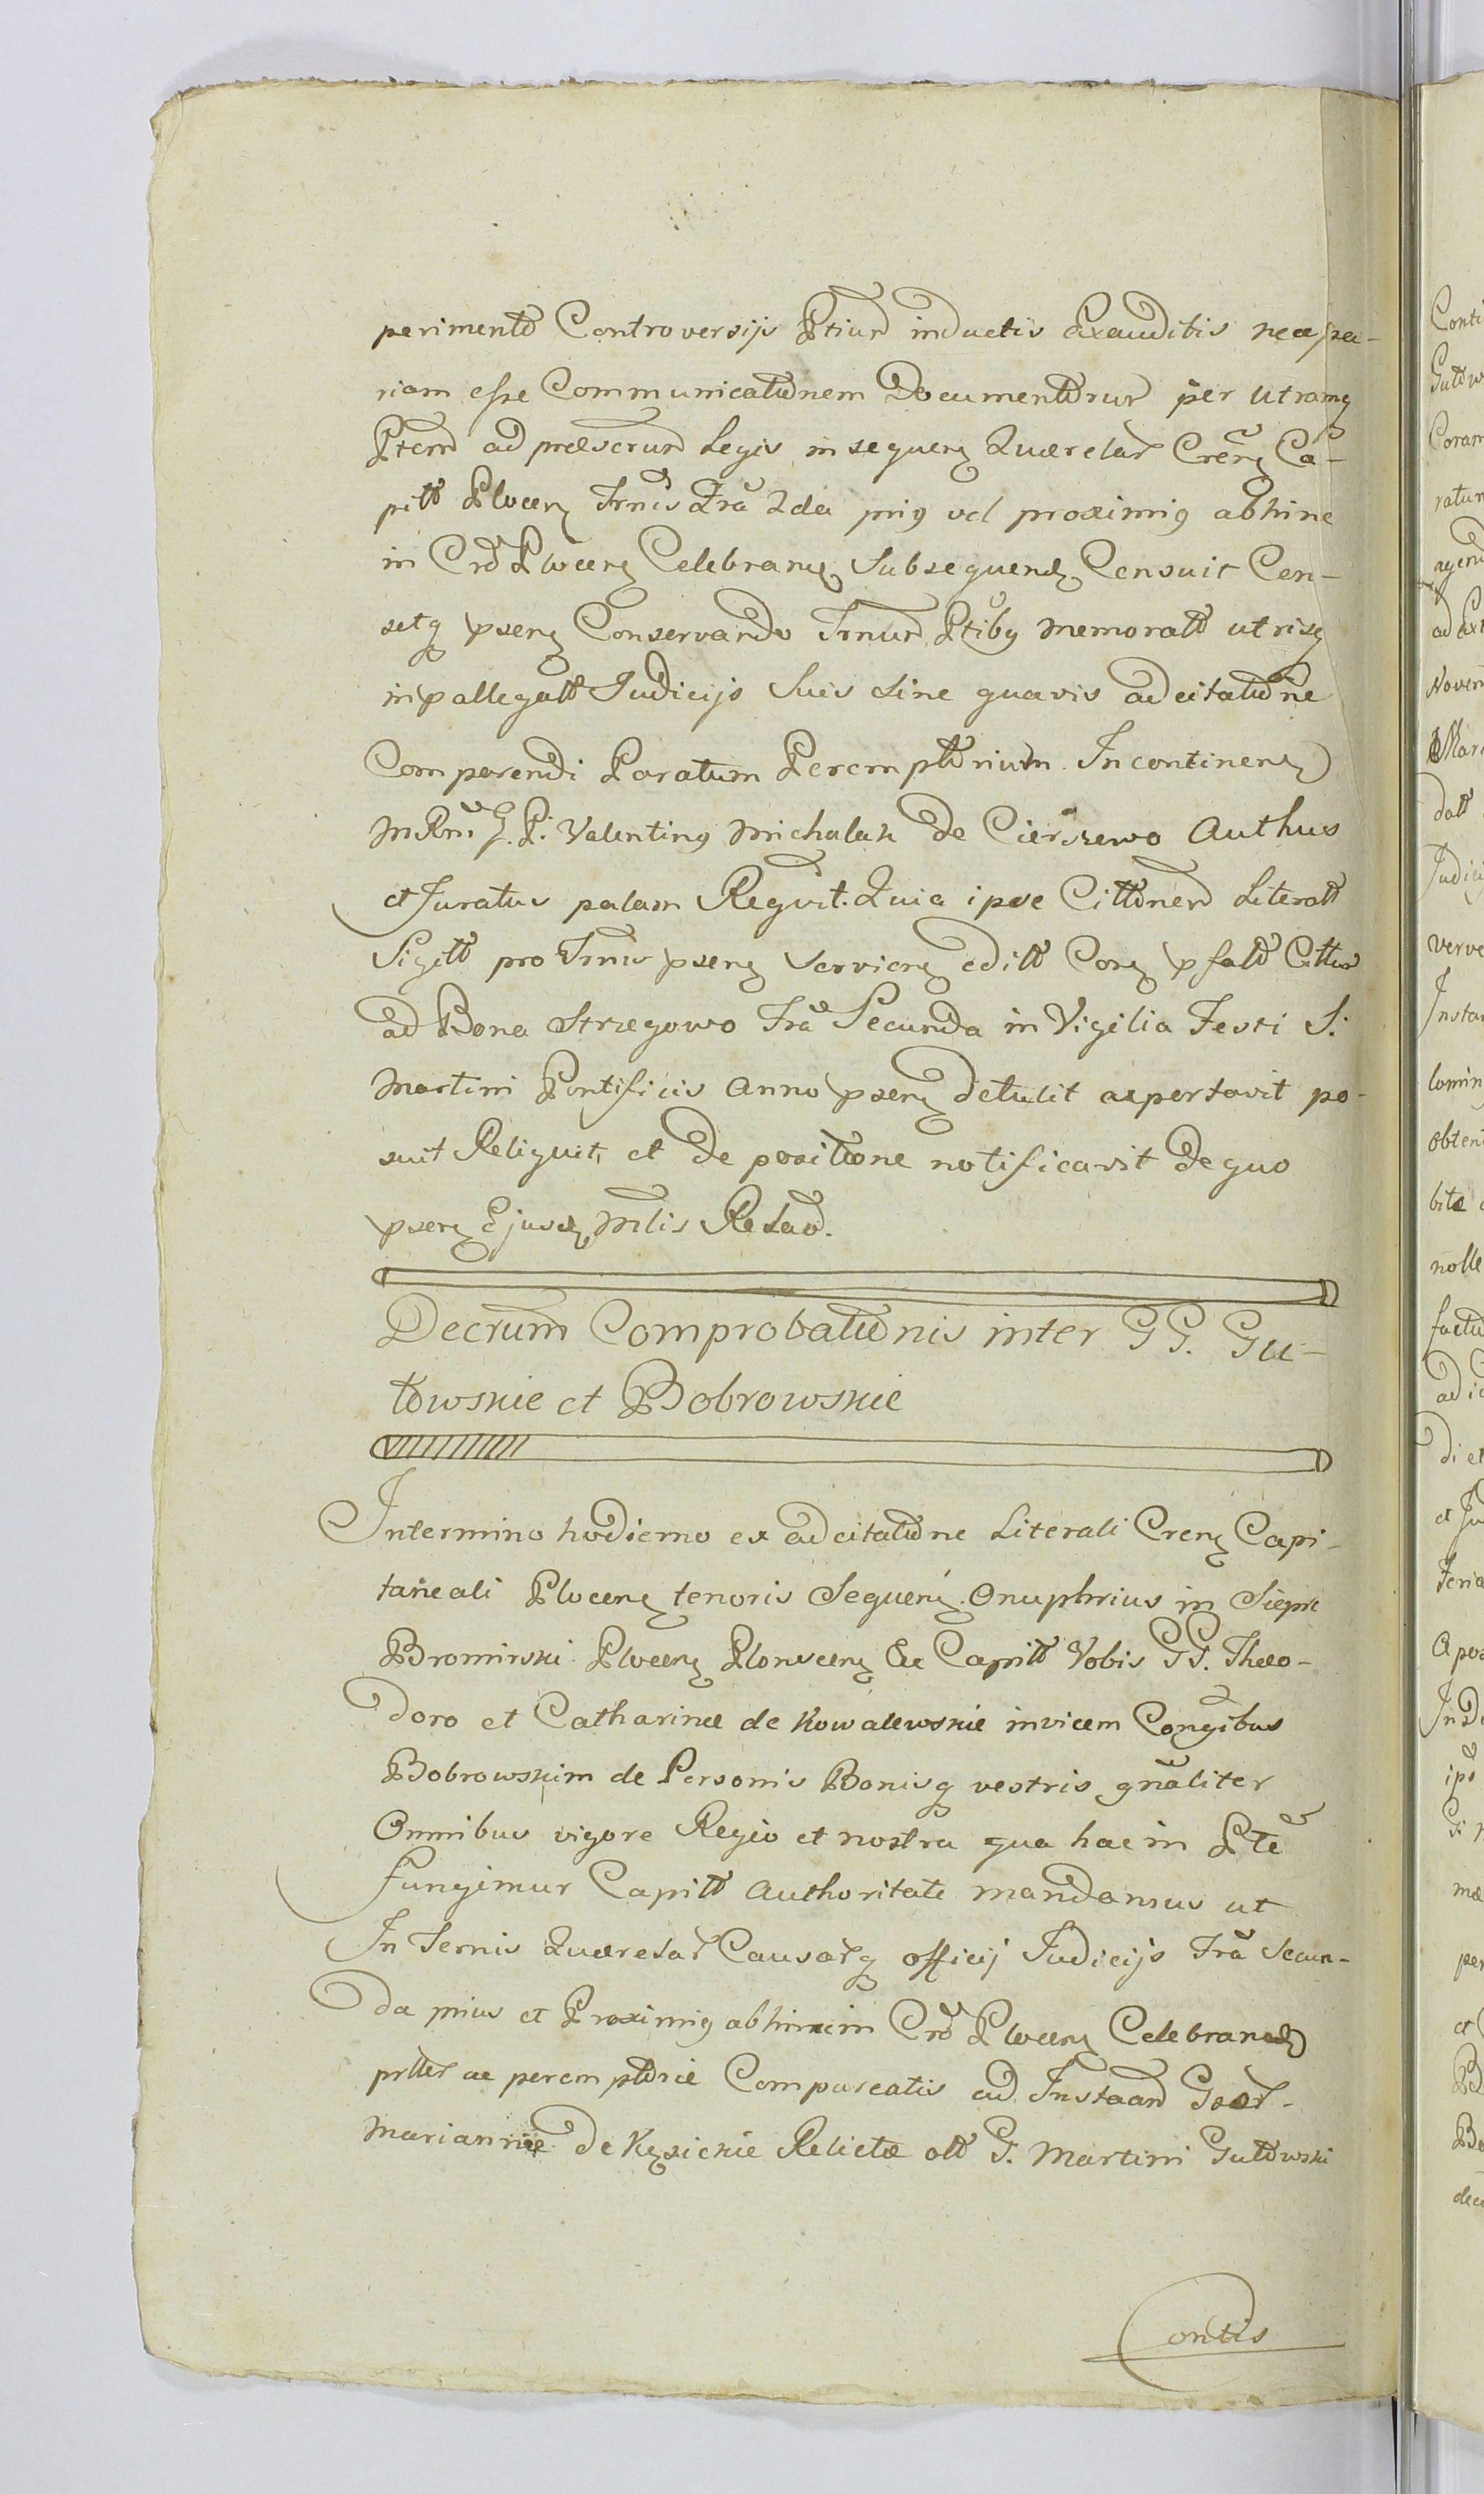 perimento Controversijs Ptium inductis Exauditis necessa-
riam esse Communicationem Documentorum per utramq
Ptem ad præscrum Legis in sequen Quærelar Cren Ca-
pitt Plocen Trnis Fra 2da prius vel proximius abhinc
in Cro Plocen Celebran Subsequend Censuit Cen-
setq psen Conservando Trnum Ptibus memoratt utrisq
in pallegatt Judicijs Suis Sine quavis adcitatione
Comparendi Paratum Peremptorium. Incontinen
M Rm. G. P. Valentinus Michalak de Cierszewo Authus
et Juratus palam Regvit. Quia ipse Cittonem Literatt
Sigitt pro Trnis psen Servien editt Con pfatt Cittus
ad Bona Strzegowo Fra Secunda in Vigilia Festi S.
Martini Pontificis Anno psen detulit asportavit po-
suit Reliquit, et de positione notificavit de quo
psen Ejusd Mlis Relao.
Decrum Comprobationis inter GG. Gu-
towskie et Bobrowskie
In termino hodierno ex adcitatione Literali Cren Capi-
taneali Plocen tenoris Sequen. Onuphrius in Siepr
Bromirski Plocen Plonscen &c Capitt Vobis GG. Theo-
doro et Catharinæ de Kowalewskie invicem Congibus
Bobrowskim de Personis Bonisq vestris gnaliter
Omnibus vigore Regio et nostra qua hac in Pte
fungimur Capitt Authoritate mandamus ut
In Ternis Quærelar Causarq officij Judicijs Fra Secun-
da prius et Proximius abhinc in Cro Plocen Celebrand
prtter ac peremptorie Compareatis ad Instaam Gsær
Mariannæ de Kęsickie Relictæ ott G. Martini Gutowski
Contis